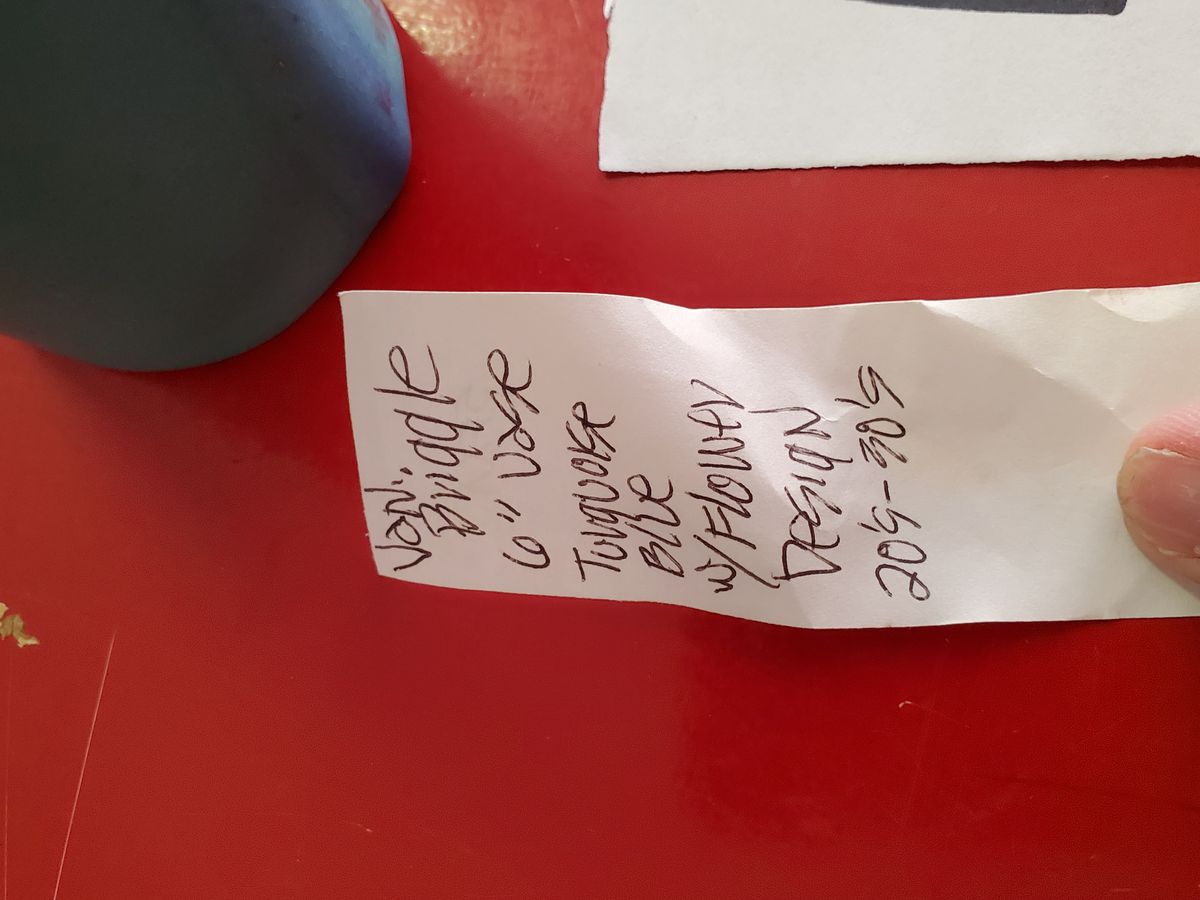 Van.
Briggle
6" Vase
Turquoise
Blue
w/Flower
Design
20's-30's